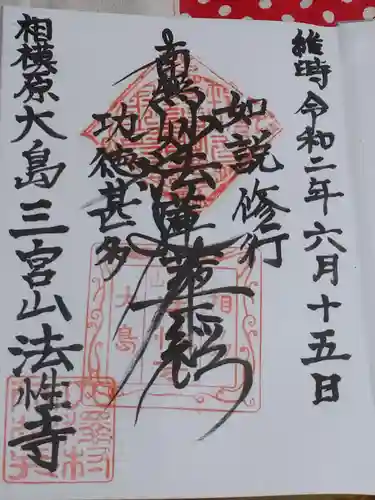 維時令和二年六月十五日
如説修行
南無妙法蓮華経
功徳甚多
相模原大島三宮山法性寺